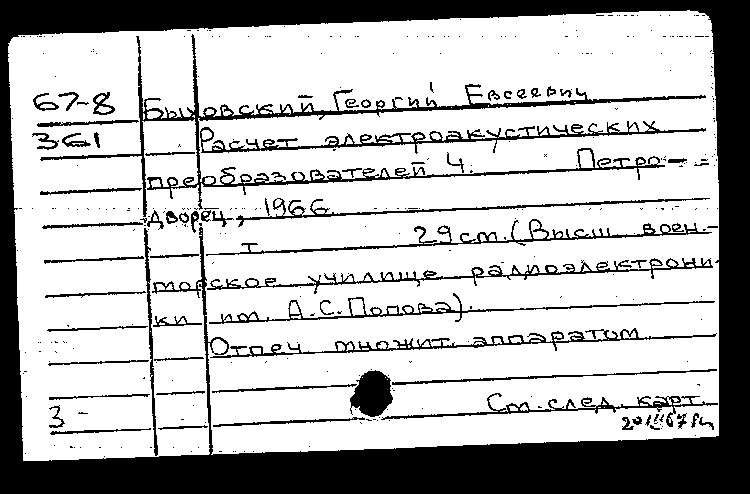 67-8 Быховский, Георгий Евсеевич
361 Расчет электроакустических
преобразователей Ч. Петро-
дворец, 1966.
т 29 см. (Высш. воен.-
морское училище радиоэлектрони-
ки им. А.С. Попова).
Отпеч. множит. аппаратом
См. след. карт.
3-